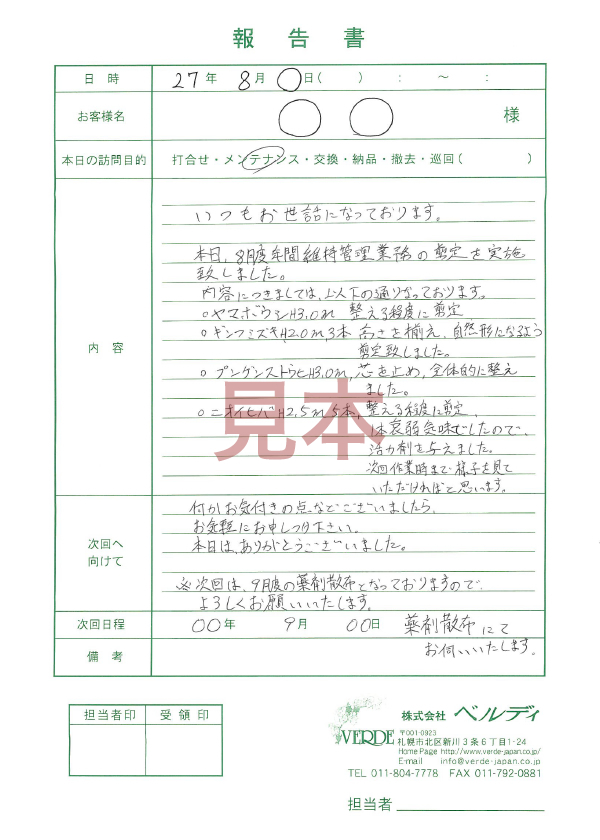 報告書
日時 27年 8月 〇日( ) : ～ :
お客様名 〇 〇 様
本日の訪問目的 打合せ・メンテナンス・交換・納品・撤去・巡回( )
内容
いつもお世話になっております。
本日、8月度年間維持管理業務の剪定を実施
致しました。
内容につきましては、以下の通りなっております。
○ヤマボウシH3.0m 整える程度に剪定
○ギンフミズキH2.0m,3本 高さを揃え、自然形になるよう
剪定致しました。
○プンゲンストウヒH3.0m,芯を止め、全体的に整え
ました。
○ニオイヒバH2.5m 5本, 整える程度に剪定、
1本衰弱気味でしたので、
活力剤を与えました。
次回作業時まで様子を見て
いただければと思います。
見本
次回へ
向けて
何かお気付きの点などございましたら、
お気軽にお申しつけ下さい。
本日は、ありがとうございました。
※次回は、9月度の薬剤散布となっておりますので、
よろしくお願いいたします。
次回日程 00年 9月 00日 薬剤散布にて
お伺いいたします。
備考
担当者印 受領印
VERDE
株式会社 ベルディ
〒001-0923
札幌市北区新川3条6丁目1-24
Home Page http://www.verde-japan.co.jp/
E-mail info@verde-japan.co.jp
TEL 011-804-7778 FAX 011-792-0881
担当者